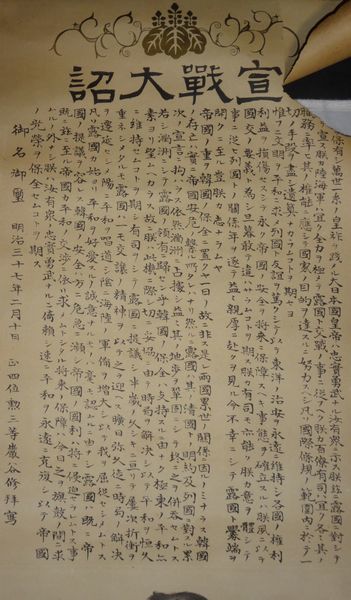 宣戰大詔
保有シ萬世一系ノ皇祚ヲ踐メル大日本國皇帝ハ忠實勇武ナル汝有衆ニ示ス朕茲ニ露國ニ對シテ
宣ス朕カ陸海軍ハ宜ク全力ヲ極メテ露國ト交戰ノ事ニ從フヘク朕カ百僚有司ハ宜ク各々其ノ
職務ニ率ヒ其ノ權能ニ應シテ國家ノ目的ヲ達スルニ努力スヘシ凡ソ國際條規ノ範圍内ニ於テ一
切ノ手段ヲ盡シ遺算ナカラムコトヲ期セヨ
惟フニ文明ヲ平和ニ求メ列國ト友誼ヲ篤クシテ以テ東洋ノ治安ヲ永遠ニ維持シ各國ノ權利
利益ヲ損傷セスシテ永ク帝國ノ安全ヲ將來ニ保障スヘキ事態ヲ確立スルハ朕夙ニ以テ
國交ノ要義ト為シ旦暮敢テ違ハサラムコトヲ期ス朕カ有司モ亦能ク朕カ意ヲ體シテ
事ニ從ヒ列國トノ關係年ヲ逐フテ益々親厚ニ赴クヲ見ル今不幸ニシテ露國ト釁端ヲ
開クニ至ル豈朕カ志ナラムヤ
帝國ノ重ヲ韓國ノ保全ニ置クヤ一日ノ故ニ非ス是レ兩國累世ノ關係ニ因ルノミナラス韓國
ノ存亡ハ實ニ帝國安危ノ繋ル所タレハナリ然ルニ露國ハ其ノ清國トノ明約及列國ニ對スル累
次ノ宣言ニ拘ハラス依然滿洲ニ占據シ益々其ノ地歩ヲ鞏固ニシテ終ニ之ヲ併呑セムトス
若シ滿洲ニシテ露國ノ領有ニ歸セン乎韓國ノ保全ハ支持スルニ由ナク極東ノ平和亦
素ヨリ望ムヘカラス故ニ朕ハ此ノ機ニ際シ切ニ妥協ニ由テ時局ヲ解決シ以テ平和ヲ恒久
ニ維持セムコトヲ期シ有司ヲシテ露國ニ提議シ半歳ノ久シキニ亙リテ屢次折衝ヲ
重ネシメタルモ露國ハ一モ交讓ノ精神ヲ以テ之ヲ迎ヘス曠日彌久徒ニ時局ノ解決
ヲ遷延セシメ陽ニ平和ヲ唱道シ陰ニ海陸ノ軍備ヲ增大シ以テ我ヲ屈從セシメムトス
凡ソ露國カ始ヨリ平和ヲ好愛スルノ誠意ナルモノ毫モ認ムルニ由ナシ露國ハ既ニ帝
國ノ提議ヲ容レス韓國ノ安全ハ方ニ危急ニ瀕シ帝國ノ國利ハ將ニ侵迫セラレムトス事
既ニ茲ニ至ル帝國カ平和ノ交渉ニ依リ求メムトシタル將來ノ保障ハ今日之ヲ旗鼓ノ間ニ求
ムルノ外ナシ朕ハ汝有衆ノ忠實勇武ナルニ倚賴シ速ニ平和ヲ永遠ニ克復シ以テ帝國
ノ光榮ヲ保全セムコトヲ期ス
御名御璽　明治三十七年二月十日　正四位勲三等巖谷修拜寫